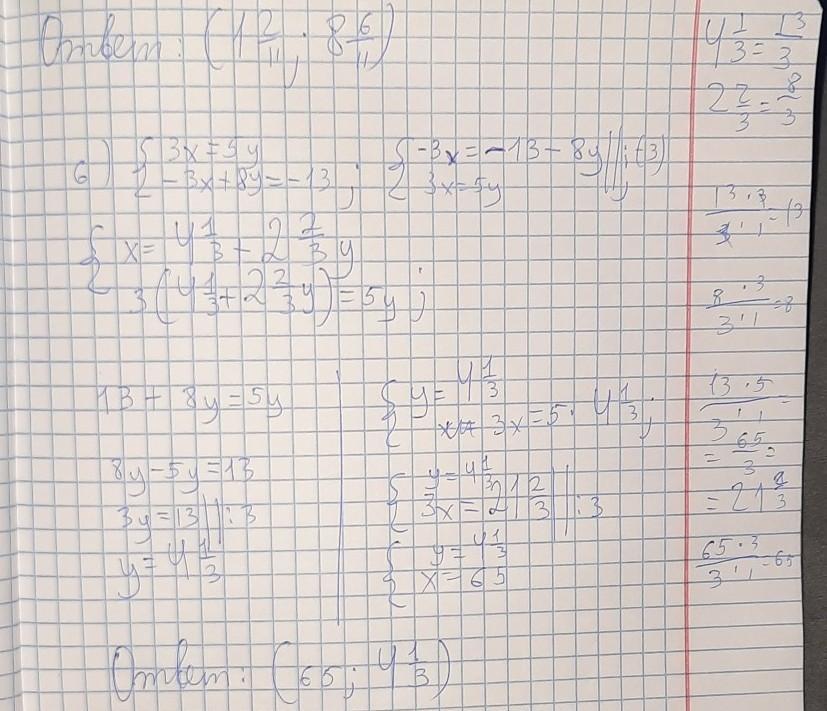 Ответ: (1 2/11; 8 6/11)
4 1/3 = 13/3
2 2/3 = 8/3
б) { 3x = 5y
-3x + 8y = -13 ;
{ -3x = -13 - 8y || :(-3)
3x = 5y ;
13 · 3 / 3 · 1 = 13
{ x = 4 1/3 + 2 2/3 y
3(4 1/3 + 2 2/3 y) = 5y ;
8 · 3 / 3 · 1 = 8
13 + 8y = 5y
8y - 5y = 13
3y = 13 || : 3
y = 4 1/3
{ y = 4 1/3
3x = 5 · 4 1/3 ;
{ y = 4 1/3
3x = 21 2/3 || : 3
{ y = 4 1/3
x = 65
13 · 5 / 3 · 1 =
= 65/3 =
= 21 2/3
65 · 3 / 3 · 1 = 65
Ответ: (65; 4 1/3)